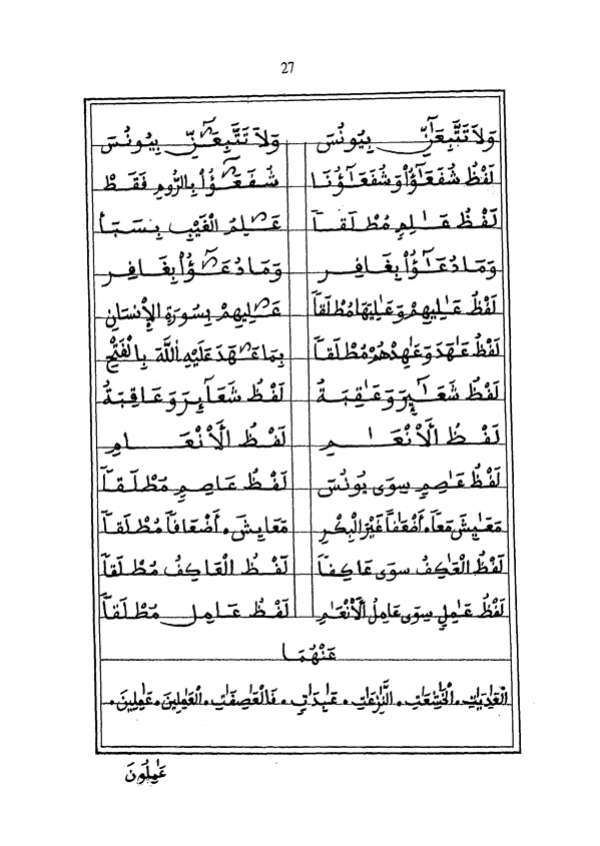 27
وَلَا تَتَّبِعَٰٓنِّ بِيُونُسَ وَلَا تَتَّبِعَآنِّ بِيُونُسَ
لَفْظُ شُفَعَٰٓؤُاْ وَشُفَعَٰٓؤُنَا شُفَعَٰٓؤُاْ بِالرُّومِ فَقَطْ
لَفْظُ عَٰلِمِ مُطْلَقاً عَٰلِمُ الْغَيْبِ بِسَبَأ
وَمَا دُعَٰٓؤُاْ بِغَافِرِ وَمَا دُعَٰٓؤُاْ بِغَافِرِ
لَفْظُ عَٰلِيهِمْ وَعَٰلِيَهَا مُطْلَقاً عَٰلِيهِمْ بِسُورَةِ الْإِنسَانِ
لَفْظُ عَٰهَدَ وَعَٰهِدْهُمْ مُطْلَقاً بِمَا عَٰهَدَ عَلَيْهِ اللَّهَ بِالْفَتْحِ
لَفْظُ شَعَٰٓئِرِ وَعَٰقِبَةُ لَفْظُ شَعَآئِرِ وَعَاقِبَةُ
لَفْظُ الْأَنْعَٰمِ لَفْظُ الْأَنْعَامِ
لَفْظُ عَٰصِمِ سِوَى يُونُسَ لَفْظُ عَاصِمِ مُطْلَقاً
مَعَٰيِشَ مَعاً. أَضْعَٰفاً غَيْرَ الْبِكْرِ مَعَايِشَ. أَضْعَافاً مُطْلَقاً
لَفْظُ الْعَٰكِفُ سِوَى عَاكِفاً لَفْظُ الْعَاكِفُ مُطْلَقاً
لَفْظُ عَٰمِلِ سِوَى عَامِلُ الْأَنْعَٰمِ لَفْظُ عَامِلِ مُطْلَقاً
عَنْهُمَا
الْعَٰدِيَٰتِ. الْخَٰشِعَٰتِ. النَّٰزِعَٰتِ. عَٰبِدَٰتٍ. فَالْعَٰصِفَٰتِ. الْعَٰمِلِينَ. عَٰمِلِينَ.
عَٰمِلُونَ